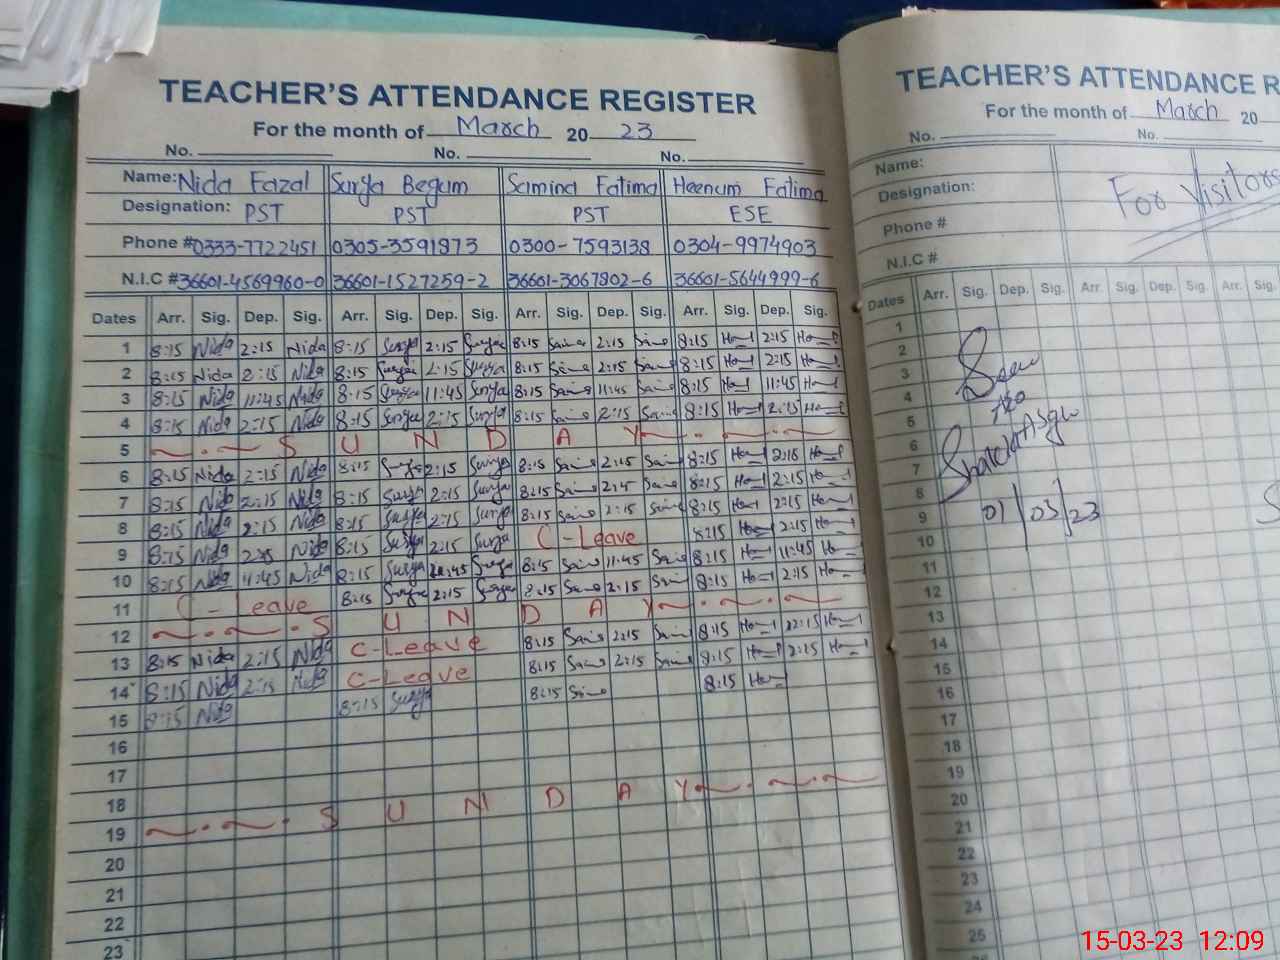 TEACHER'S ATTENDANCE REGISTER
For the month of March 20 23
No. No. No.
Name: Nida Fazal Surya Begum Samina Fatima Heenum Fatima
Designation: PST PST PST ESE
Phone # 0333-7722451 0305-3591873 0300-7593138 0304-9974903
N.I.C # 36601-4569960-0 36601-1527259-2 36601-3067802-6 36601-5644999-6
Dates Arr. Sig. Dep. Sig. Arr. Sig. Dep. Sig. Arr. Sig. Dep. Sig. Arr. Sig. Dep. Sig.
1 8:15 Nida 2:15 Nida 8:15 Surya 2:15 Surya 8:15 2:15 8:15 2:15
2 8:15 Nida 2:15 Nida 8:15 Surya 2:15 Surya 8:15 2:15 8:15 2:15
3 8:15 Nida 11:45 Nida 8:15 Surya 11:45 Surya 8:15 11:45 8:15 11:45
4 8:15 Nida 2:15 Nida 8:15 Surya 2:15 Surya 8:15 2:15 8:15 2:15
5 S U N D A Y
6 8:15 Nida 2:15 Nida 8:15 Surya 2:15 Surya 8:15 2:15 8:15 2:15
7 8:15 Nida 2:15 Nida 8:15 Surya 2:15 Surya 8:15 2:15 8:15 2:15
8 8:15 Nida 2:15 Nida 8:15 Surya 2:15 Surya 8:15 2:15 8:15 2:15
9 8:15 Nida Nida 8:15 Surya 2:15 Surya C-Leave 8:15 2:15
10 8:15 Nida 11:45 Nida 8:15 Surya 11:45 Surya 8:15 11:45 8:15 11:45
11 C-Leave 8:15 Surya 2:15 Surya 8:15 2:15 8:15 2:15
12 S U N D A Y
13 8:15 Nida 2:15 Nida C-Leave 8:15 2:15 8:15 2:15
14 8:15 Nida 2:15 Nida C-Leave 8:15 2:15 8:15 2:15
15 8:15 Nida 8:15 Surya 8:15 8:15
16
17
18
19 S U N D A Y
20
21
22
23
TEACHER'S ATTENDANCE R
For the month of March 20
No. No.
Name:
Designation:
For Visitors
Phone #
N.I.C #
Dates Arr. Sig. Dep. Sig. Arr. Sig. Dep. Sig. Arr. Sig.
1
2
3
4
5
6
7
8
9
01/03/23
10
11
12
13
14
15
16
17
18
19
20
21
22
23
24
25
15-03-23 12:09